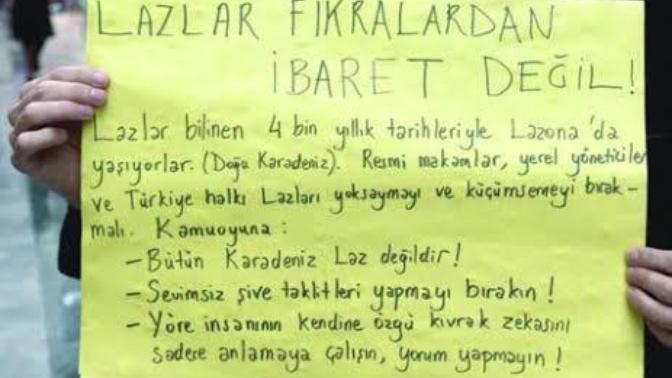 LAZLAR FIKRALARDAN
İBARET DEĞİL!
Lazlar bilinen 4 bin yıllık tarihleriyle Lazona'da
yaşıyorlar. (Doğu Karadeniz). Resmi makamlar, yerel yöneticiler
ve Türkiye halkı Lazları yoksaymayı ve küçümsemeyi bırak-
malı. Kamuoyuna :
- Bütün Karadeniz Laz değildir!
- Sevimsiz şive taklitleri yapmayı bırakın !
- Yöre insanının kendine özgü kıvrak zekasını
sadece anlamaya çalışın, yorum yapmayın !